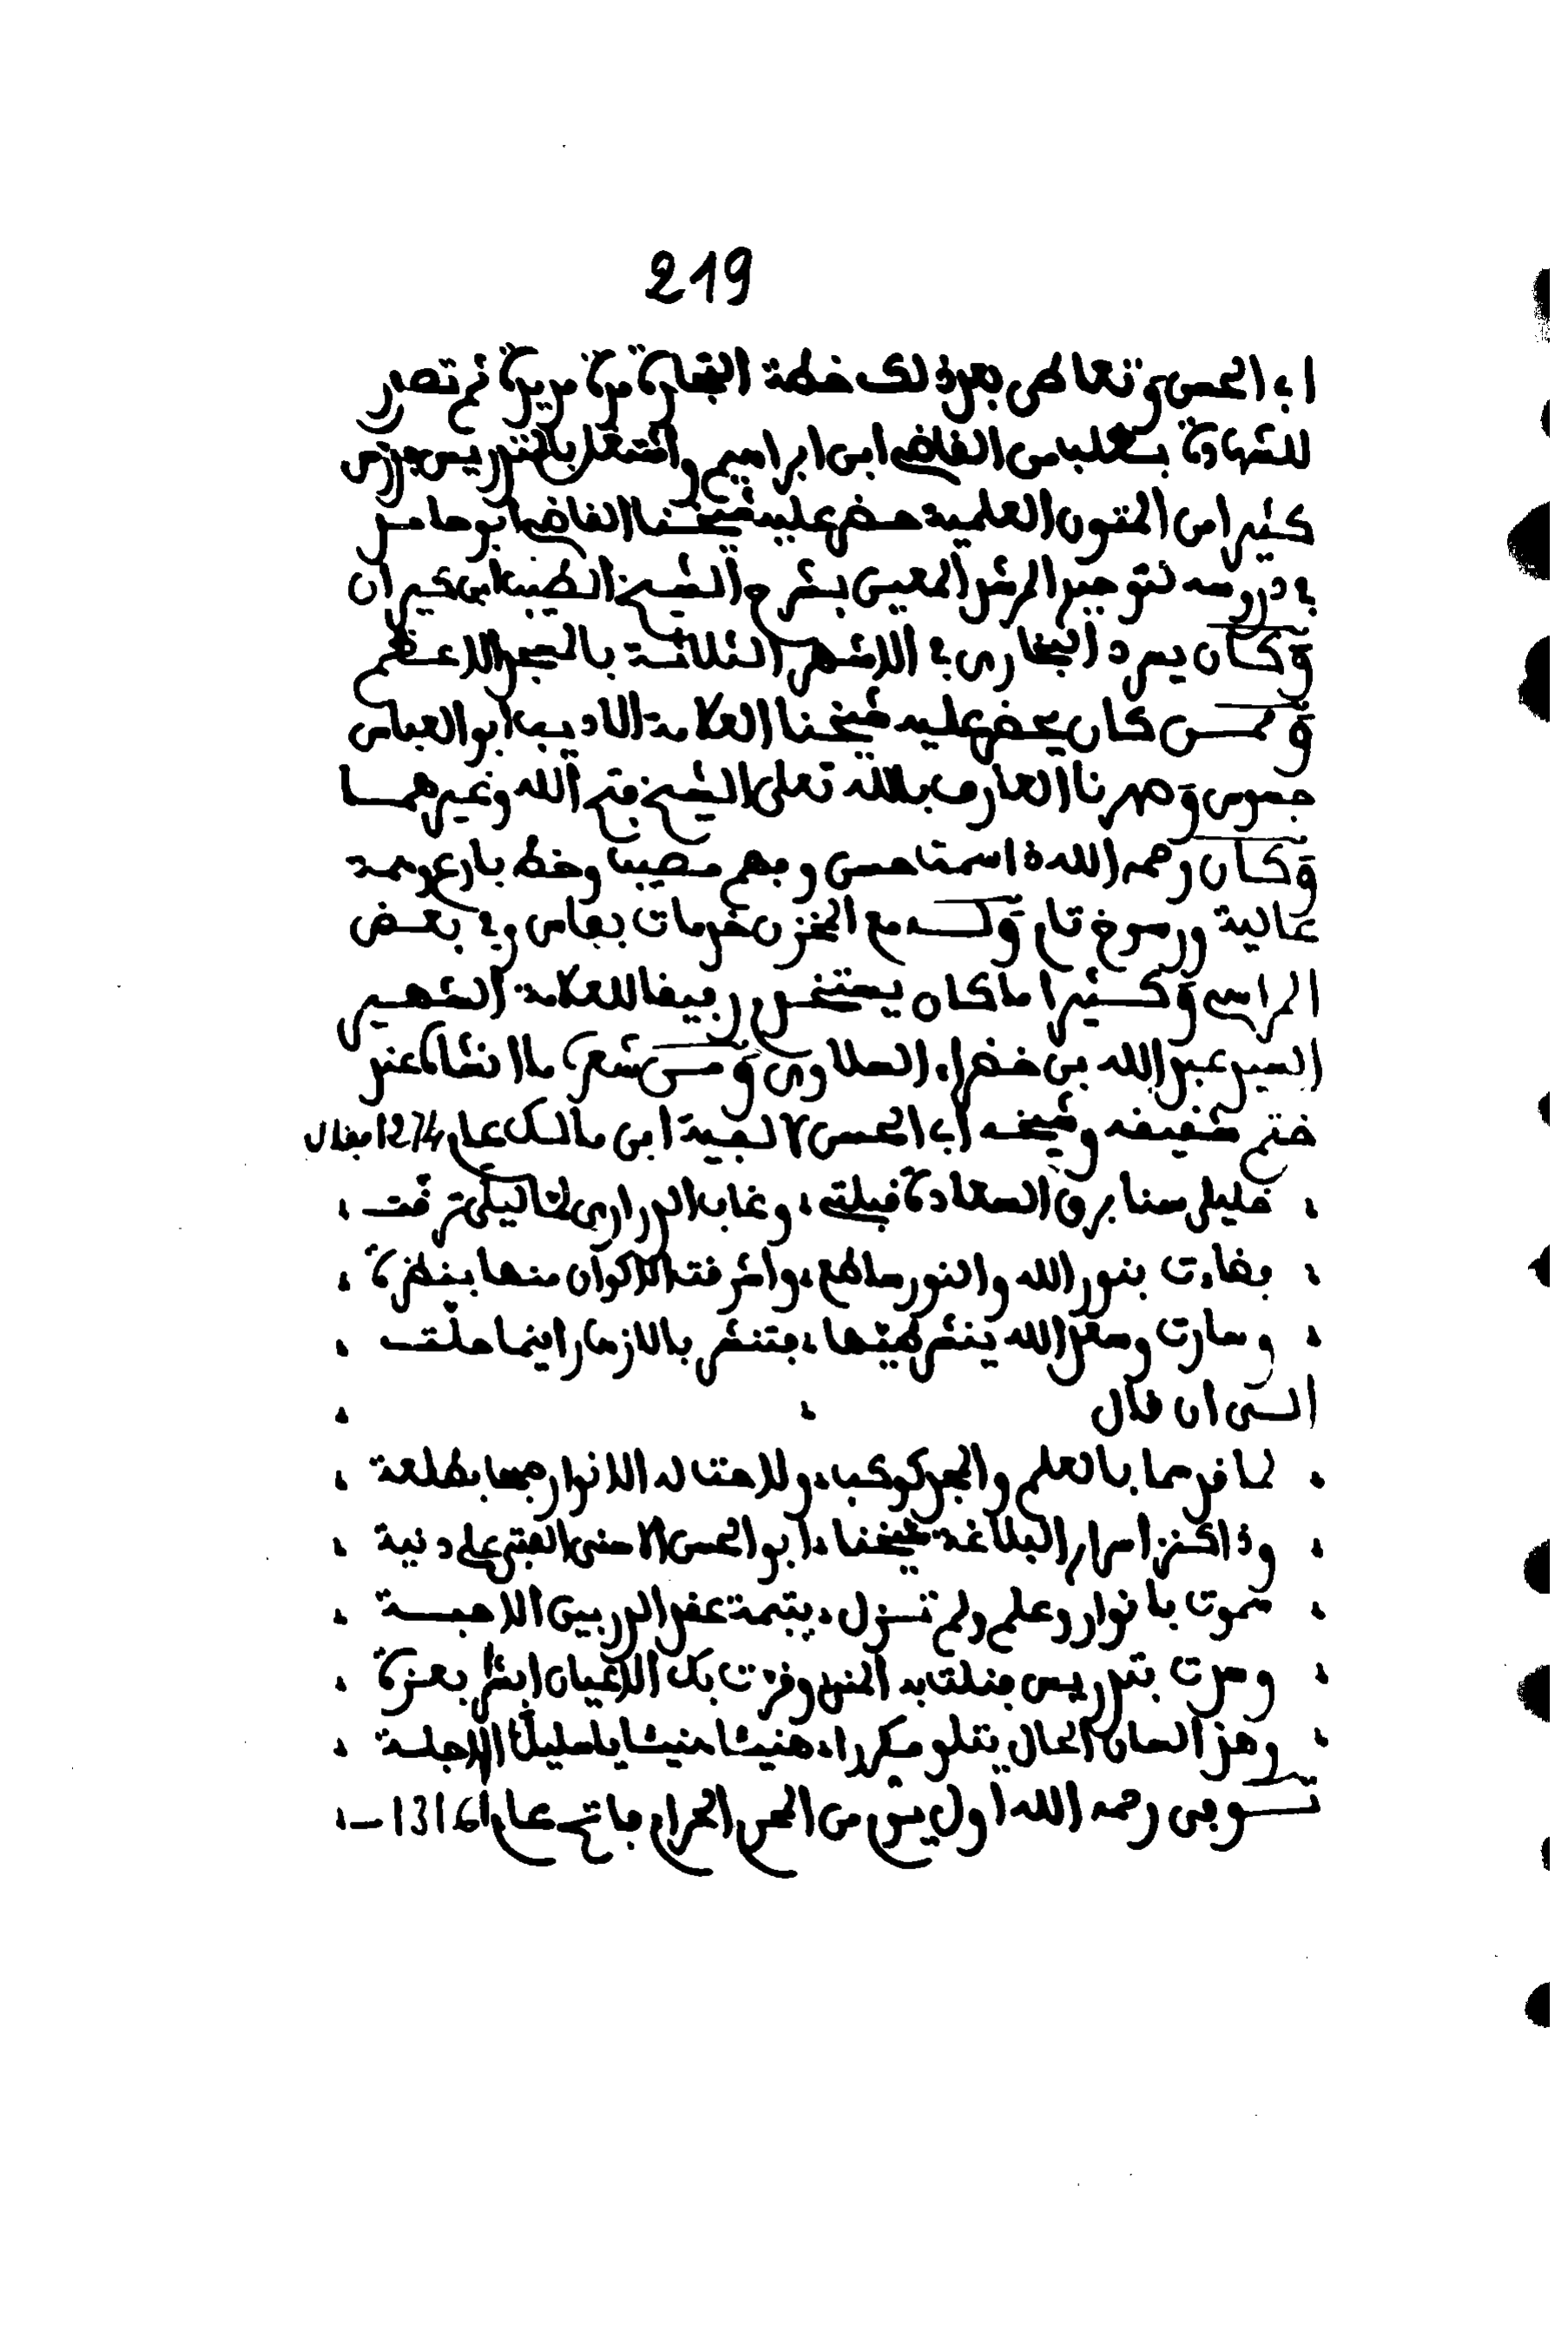 219
ابي الحسن وتعاطى بعد ذلك خطة التجارة مدة مديدة ثم تصدر
للشهادة بطلب من القاضي ابن ابراهيم واشتغل بالتدريس ودرس
كثيرا من المتون العلمية حضر عليه شيخنا القاضي ابو حامد
في دروسه لتوحيد المرشد المعين بشرح الشيخ الطيب ابن كيران
وكان يسرد البخاري في الاشهر الثلاثة بالمسجد الاعظم
وممن كان يحضر عليه شيخنا العلامة الاديب ابو العباس
جسوس وصهرنا العارف بالله تعلى الشيخ فتح الله وغيرهما
وكان رحمه الله ذا سمت حسن وفهم مصيب وخط بارع وهمة
عالية ورسوخ تام وله مع المخزن خدمات بفاس وفي بعض
المراسي وكثيرا ما كان يستخدم رفيقا للعلامة الشهير
السيد عبد الله بن خضراء السلاوي ومن شعره ما انشاه عند
ختم شقيقه وشيخه ابي الحسن لالفية ابن مالك عام 1274 فقال
خليلي سنا برق السعادة قبلتي، وغاب الدراري لنا ليلى ترقت
بضاءت بنور الله والنور ساطع، واشرقت الاكوان منها بنظرة
وسارت وسعد الله ينشر طيبها، فتنشر بالازهار اينما حلت
الى ان قال
لما قد سما بالعلم والمجد كوكب، ولاحت له الانوار جمعا بطلعة
وذا كنز اسرار البلاغة شيخنا، ابو الحسن الاسنى الفتى علي دنية
سموت بانوار وعلم ولم تزل، يتيمة عقد الدر بين الاحبة
وسرت بتدريس فنلت به المنى، وقرت بك الاعيان ابشر بعزة
وهذا لسان الحال يتلو مكررا، هنيئا هنيئا يا سليل الاجلة
توفي رحمه الله اول يوم من المحرم الحرام فاتح عام 1316